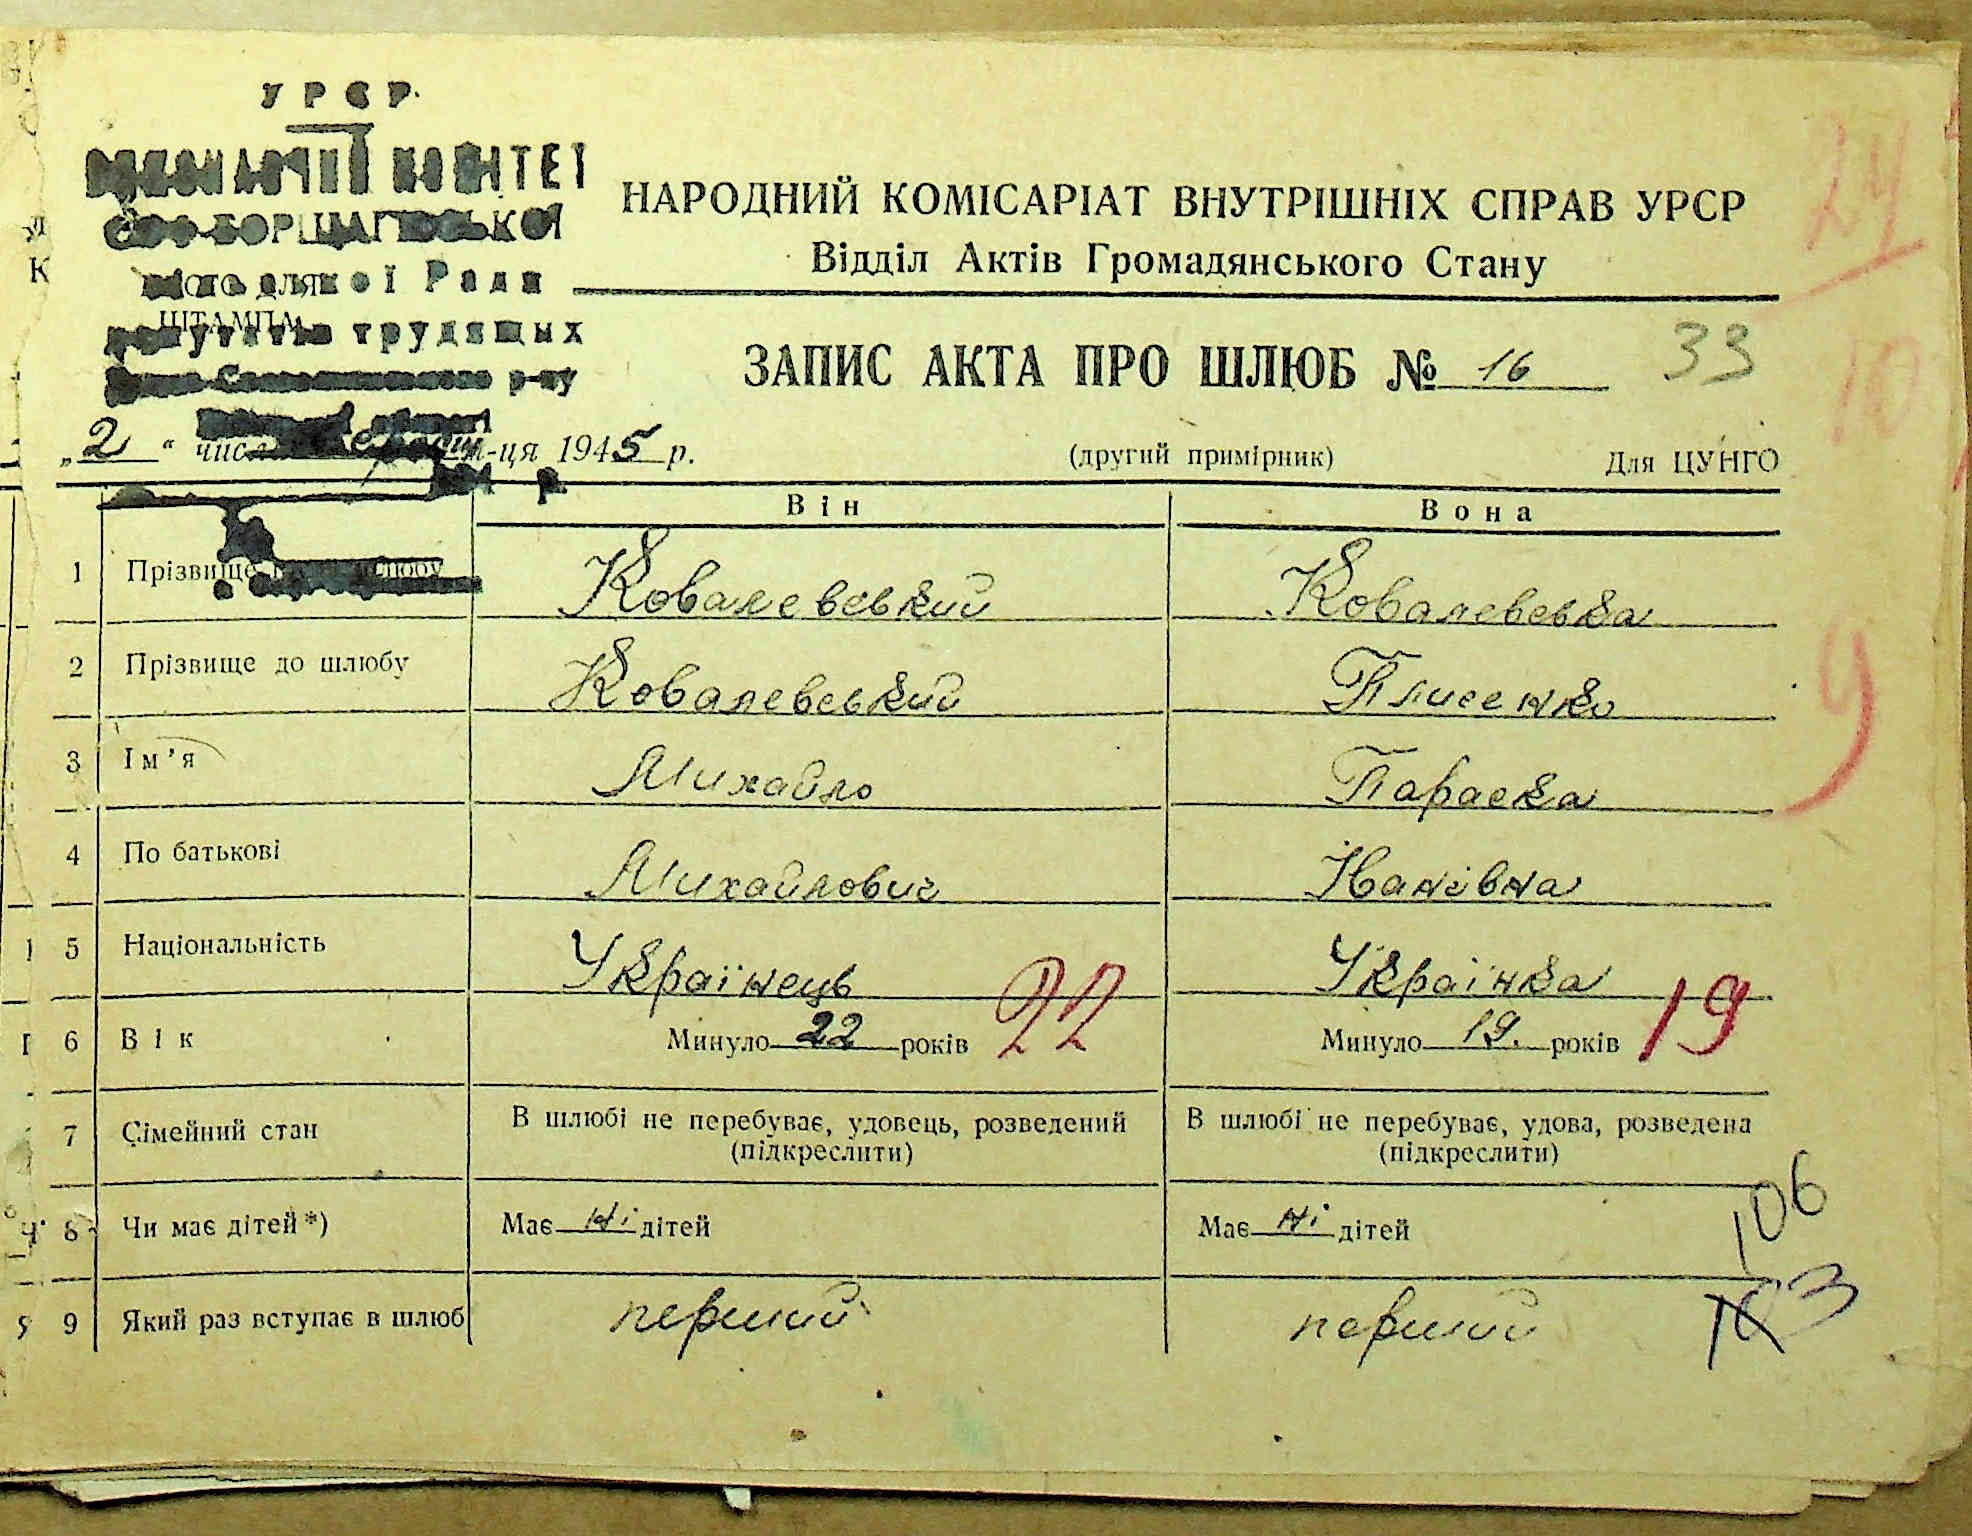 УРСР
ВИКОНАВЧИЙ КОМІТЕТ
СОФ-БОРЩАГІВСЬКОЇ
Ради
ШТАМП
депутатів трудящих
р-ну
НАРОДНИЙ КОМІСАРІАТ ВНУТРІШНІХ СПРАВ УРСР
Відділ Актів Громадянського Стану
24
ЗАПИС АКТА ПРО ШЛЮБ № 16
33
10
„2“ числа м-ця 1945 р.
(другий примірник)
Для ЦУНГО
Він
Вона
1 Прізвище Ковалевський Ковалевська
2 Прізвище до шлюбу Ковалевський Плисенко
9
3 Ім'я Михайло Параска
4 По батькові Михайлович Іванівна
5 Національність Українець Українка
6 Вік Минуло 22 років 22 Минуло 19. років 19
7 Сімейний стан В шлюбі не перебуває, удовець, розведений (підкреслити) В шлюбі не перебуває, удова, розведена (підкреслити)
106
8 Чи має дітей*) Має ні дітей Має ні дітей
103
9 Який раз вступає в шлюб перший перший